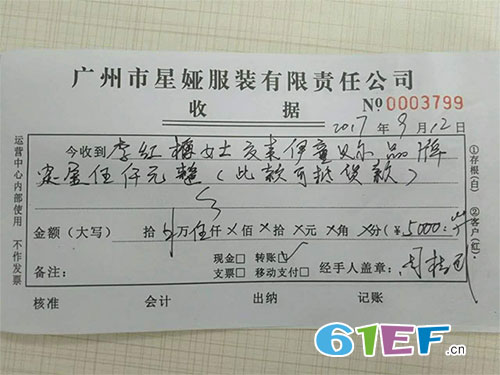 广州市星娅服装有限责任公司
收 据 № 0003799
2017 年 9 月 12 日
今收到 李红梅女士 交来伊童贝尔品牌
定金伍仟元整（此款可抵货款）
金额（大写） 拾 万 伍 仟 × 佰 × 拾 × 元 × 角 × 分（¥ 5000
现金□ 转账☑
备注： 支票□ 移动支付□ 经手人盖章：
核准 会计 出纳 记账
运营中心内部使用 不作发票
①存根(白) ②客户(红)
61EF.cn